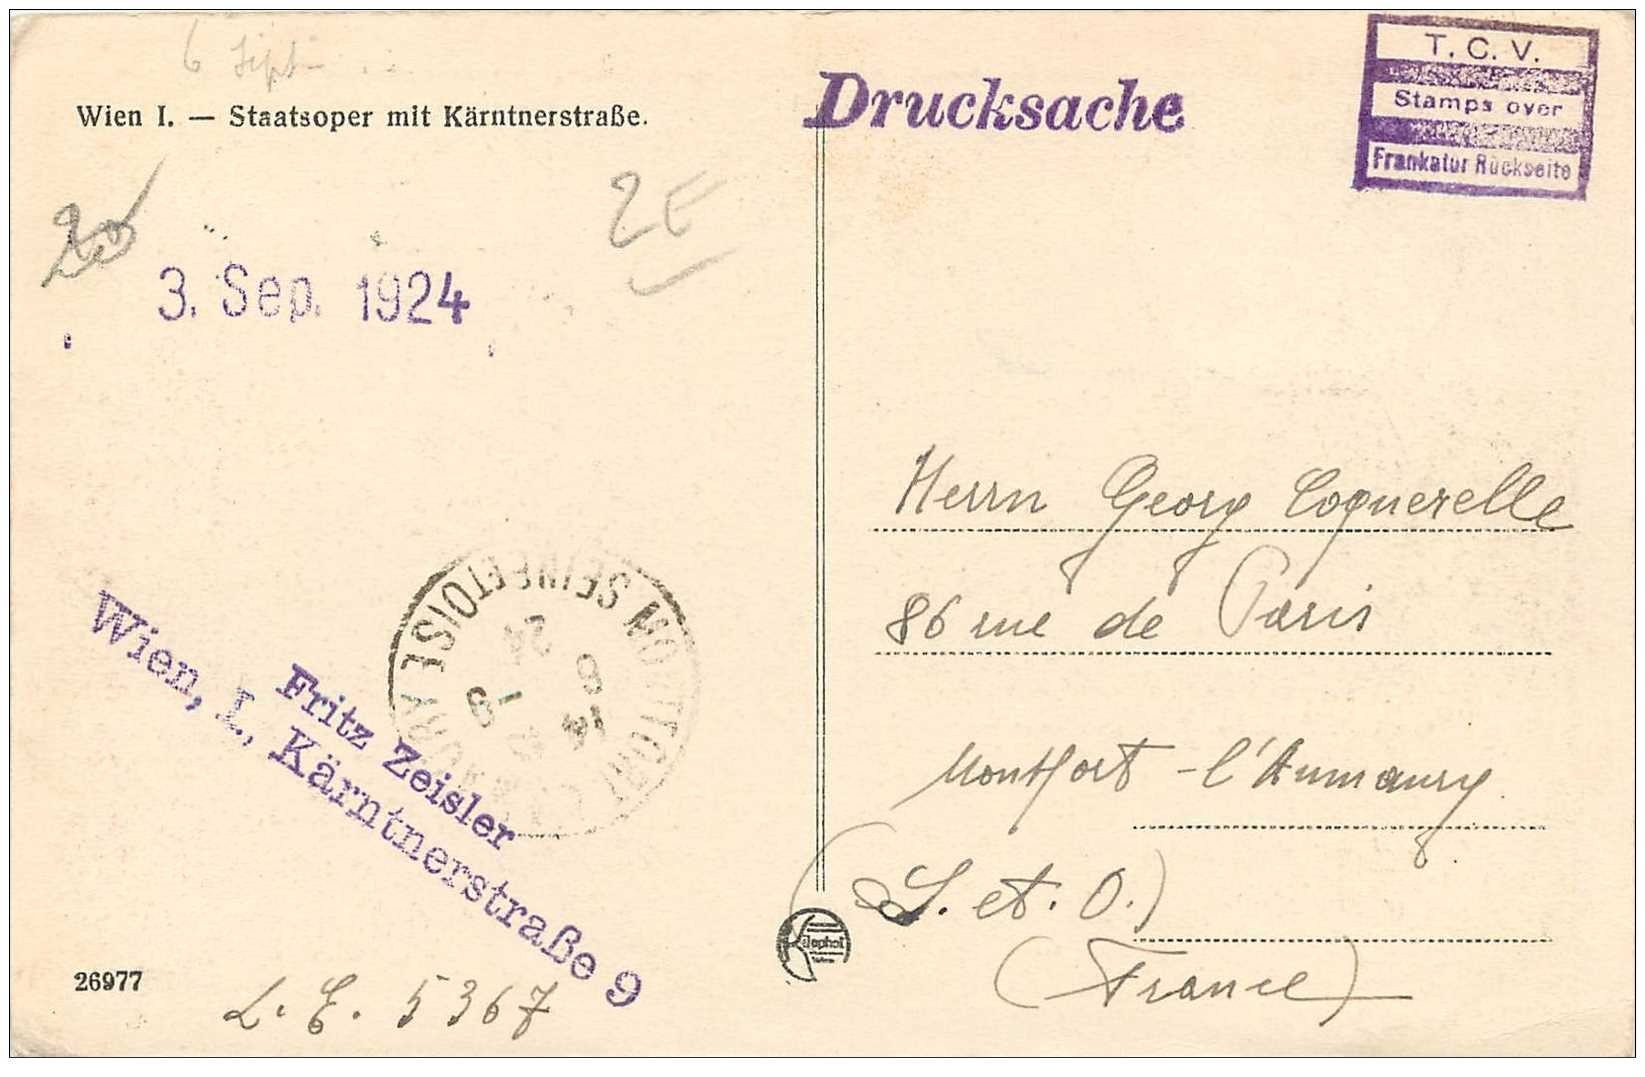 6 Sept
Wien I. — Staatsoper mit Kärntnerstraße.
Drucksache
T. C. V.
Stamps over
Frankatur Rückseite
20
2E
3. Sep. 1924
Herrn Georg Coquerelle
86 rue de Paris
Montfort - l'Aumaury.
(S. et. O.)
(France)
MONTFORT L'AMAURY SEINE ET OISE
14
6 - 9
24
Fritz Zeisler
Wien, I., Kärntnerstraße 9
26977
L. E. 5367